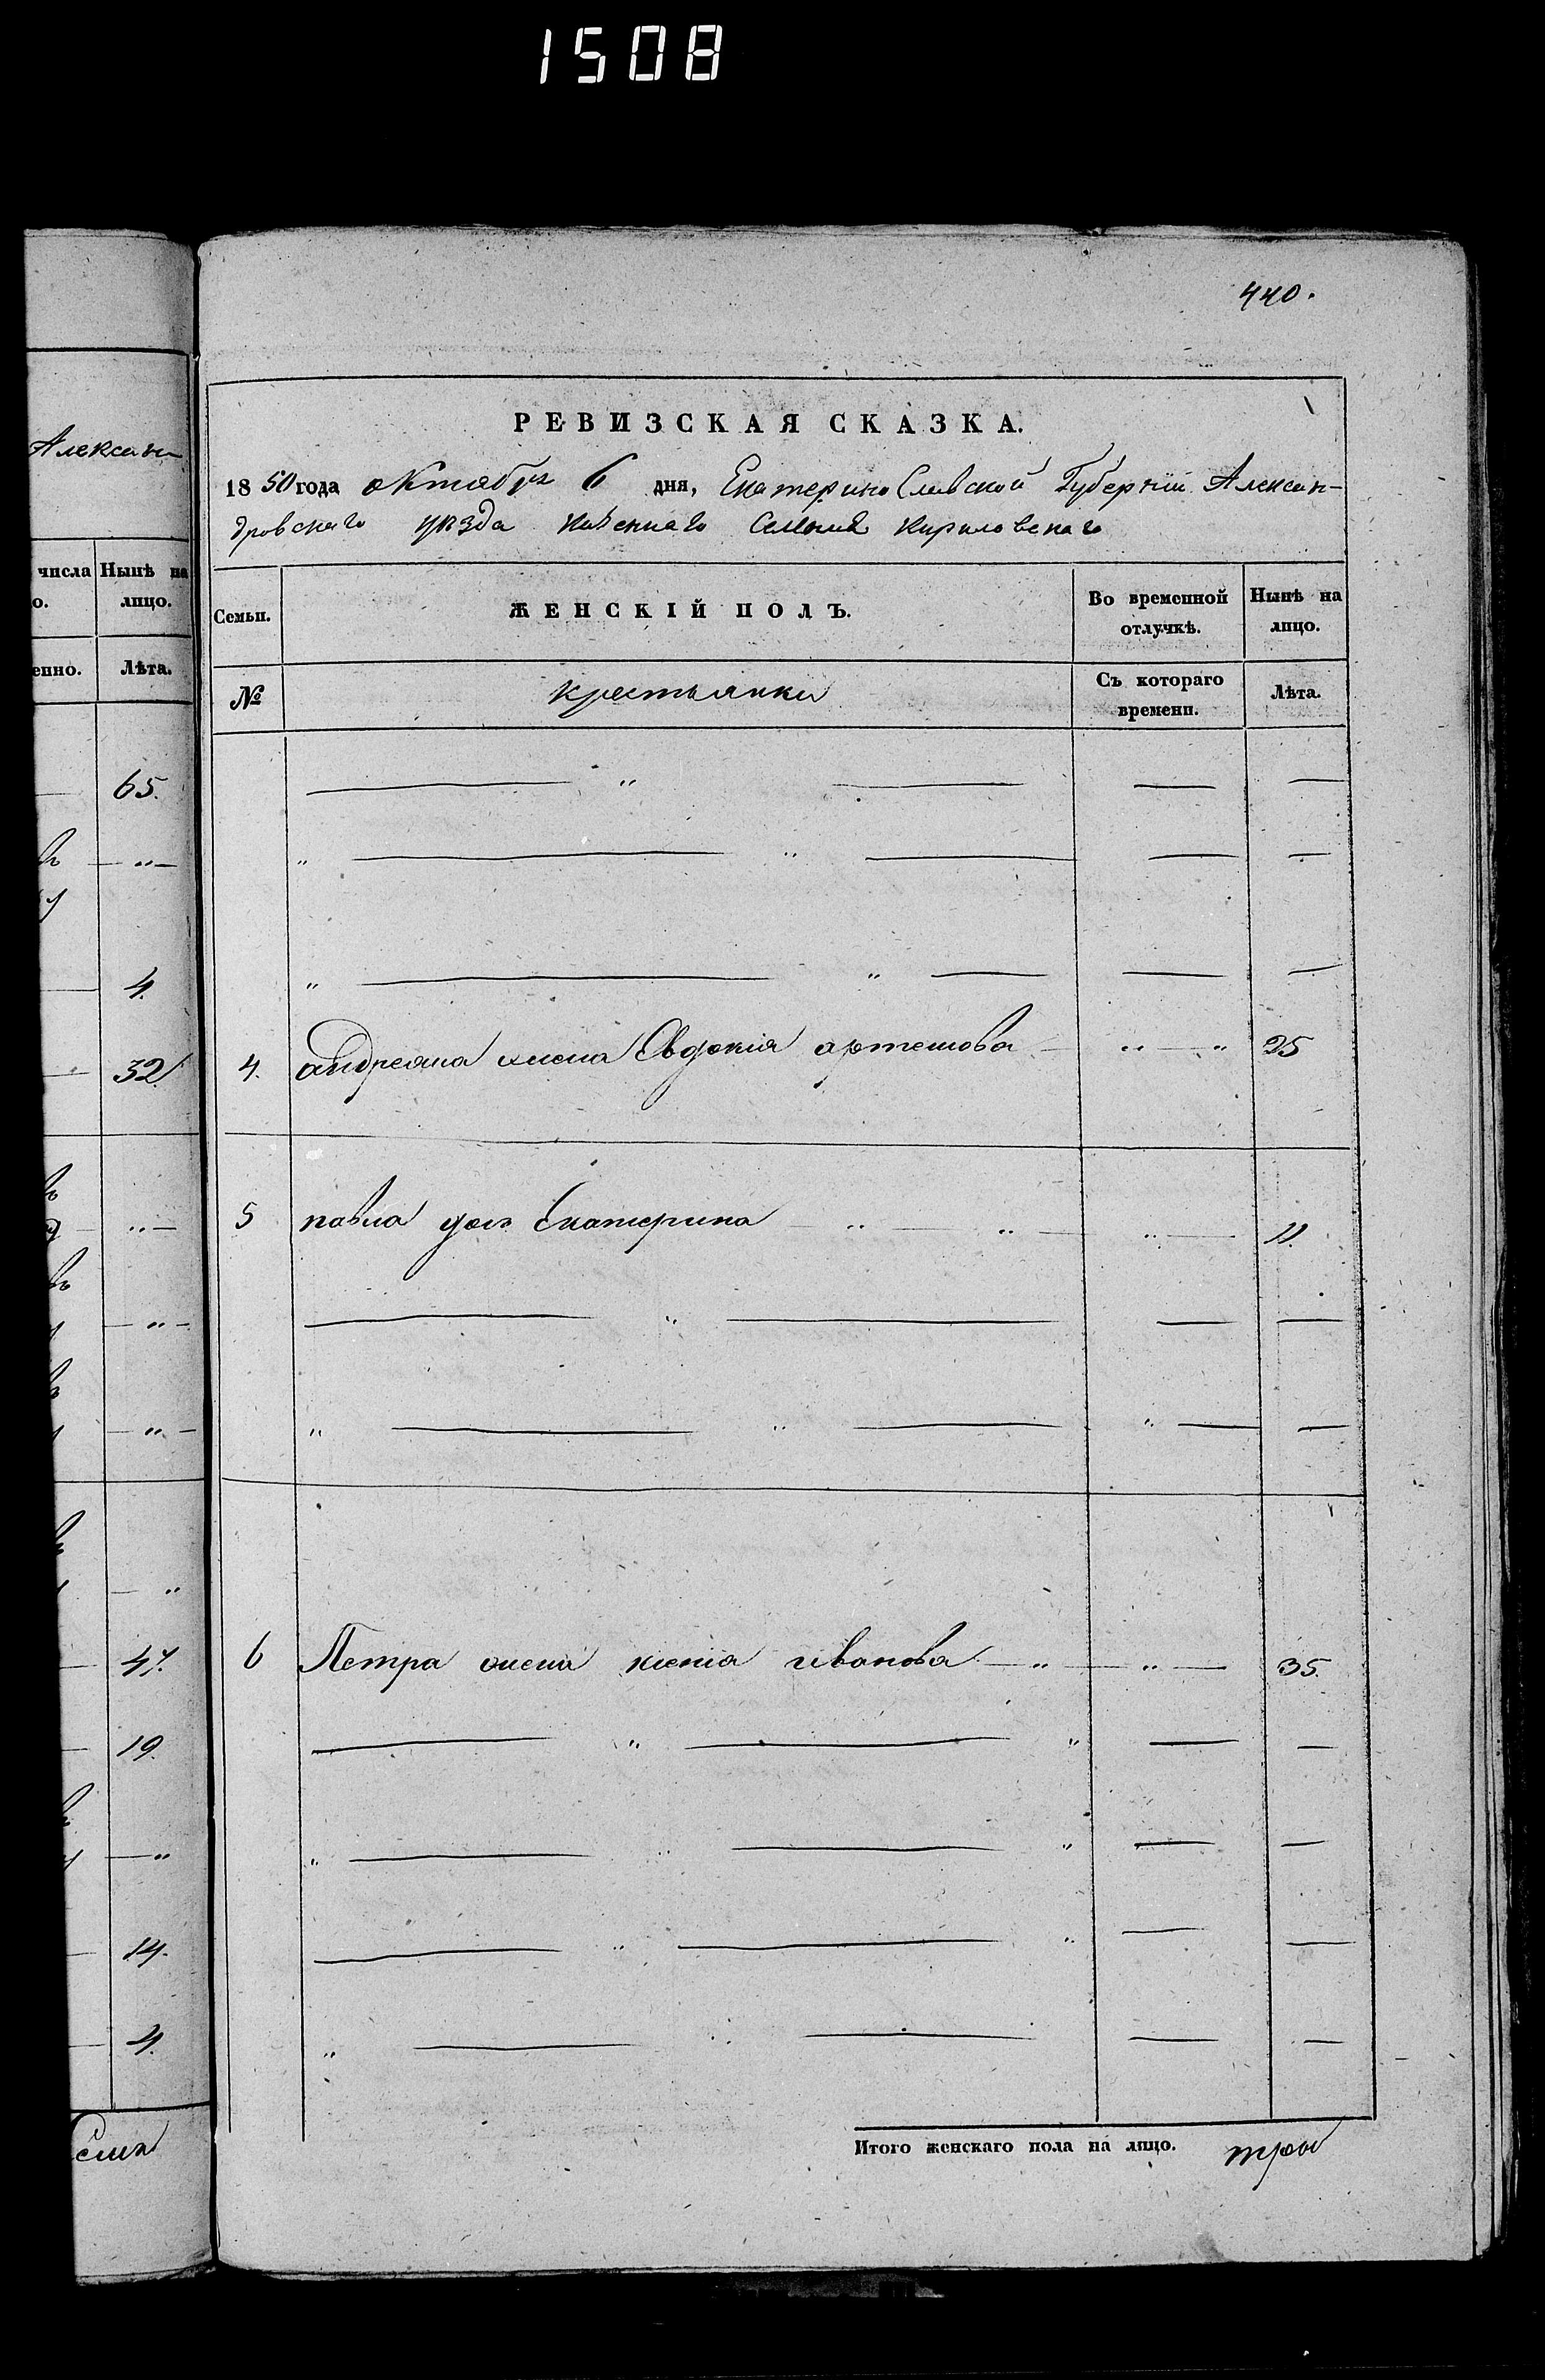 1508
440.
Алексан
числа Нынѣ на
о. лицо.
енно. Лѣта.
65.
4.
32
47.
19.
14.
4.
РЕВИЗСКАЯ СКАЗКА.
1850 года октября 6 дня, Екатеринославской Губерніи Алексан-
дровскаго уѣзда казеннаго Селенія Кириловскаго
Семьи. ЖЕНСКІЙ ПОЛЪ. Во временной отлучкѣ. Нынѣ на лицо.
№ крестьянки Съ котораго времени. Лѣта.
4. андреяна жена Евдокія артемова 25
5 павла доч Екатерина 11.
6 Петра жена ксенія иванова 35.
Итого женскаго пола на лицо. три